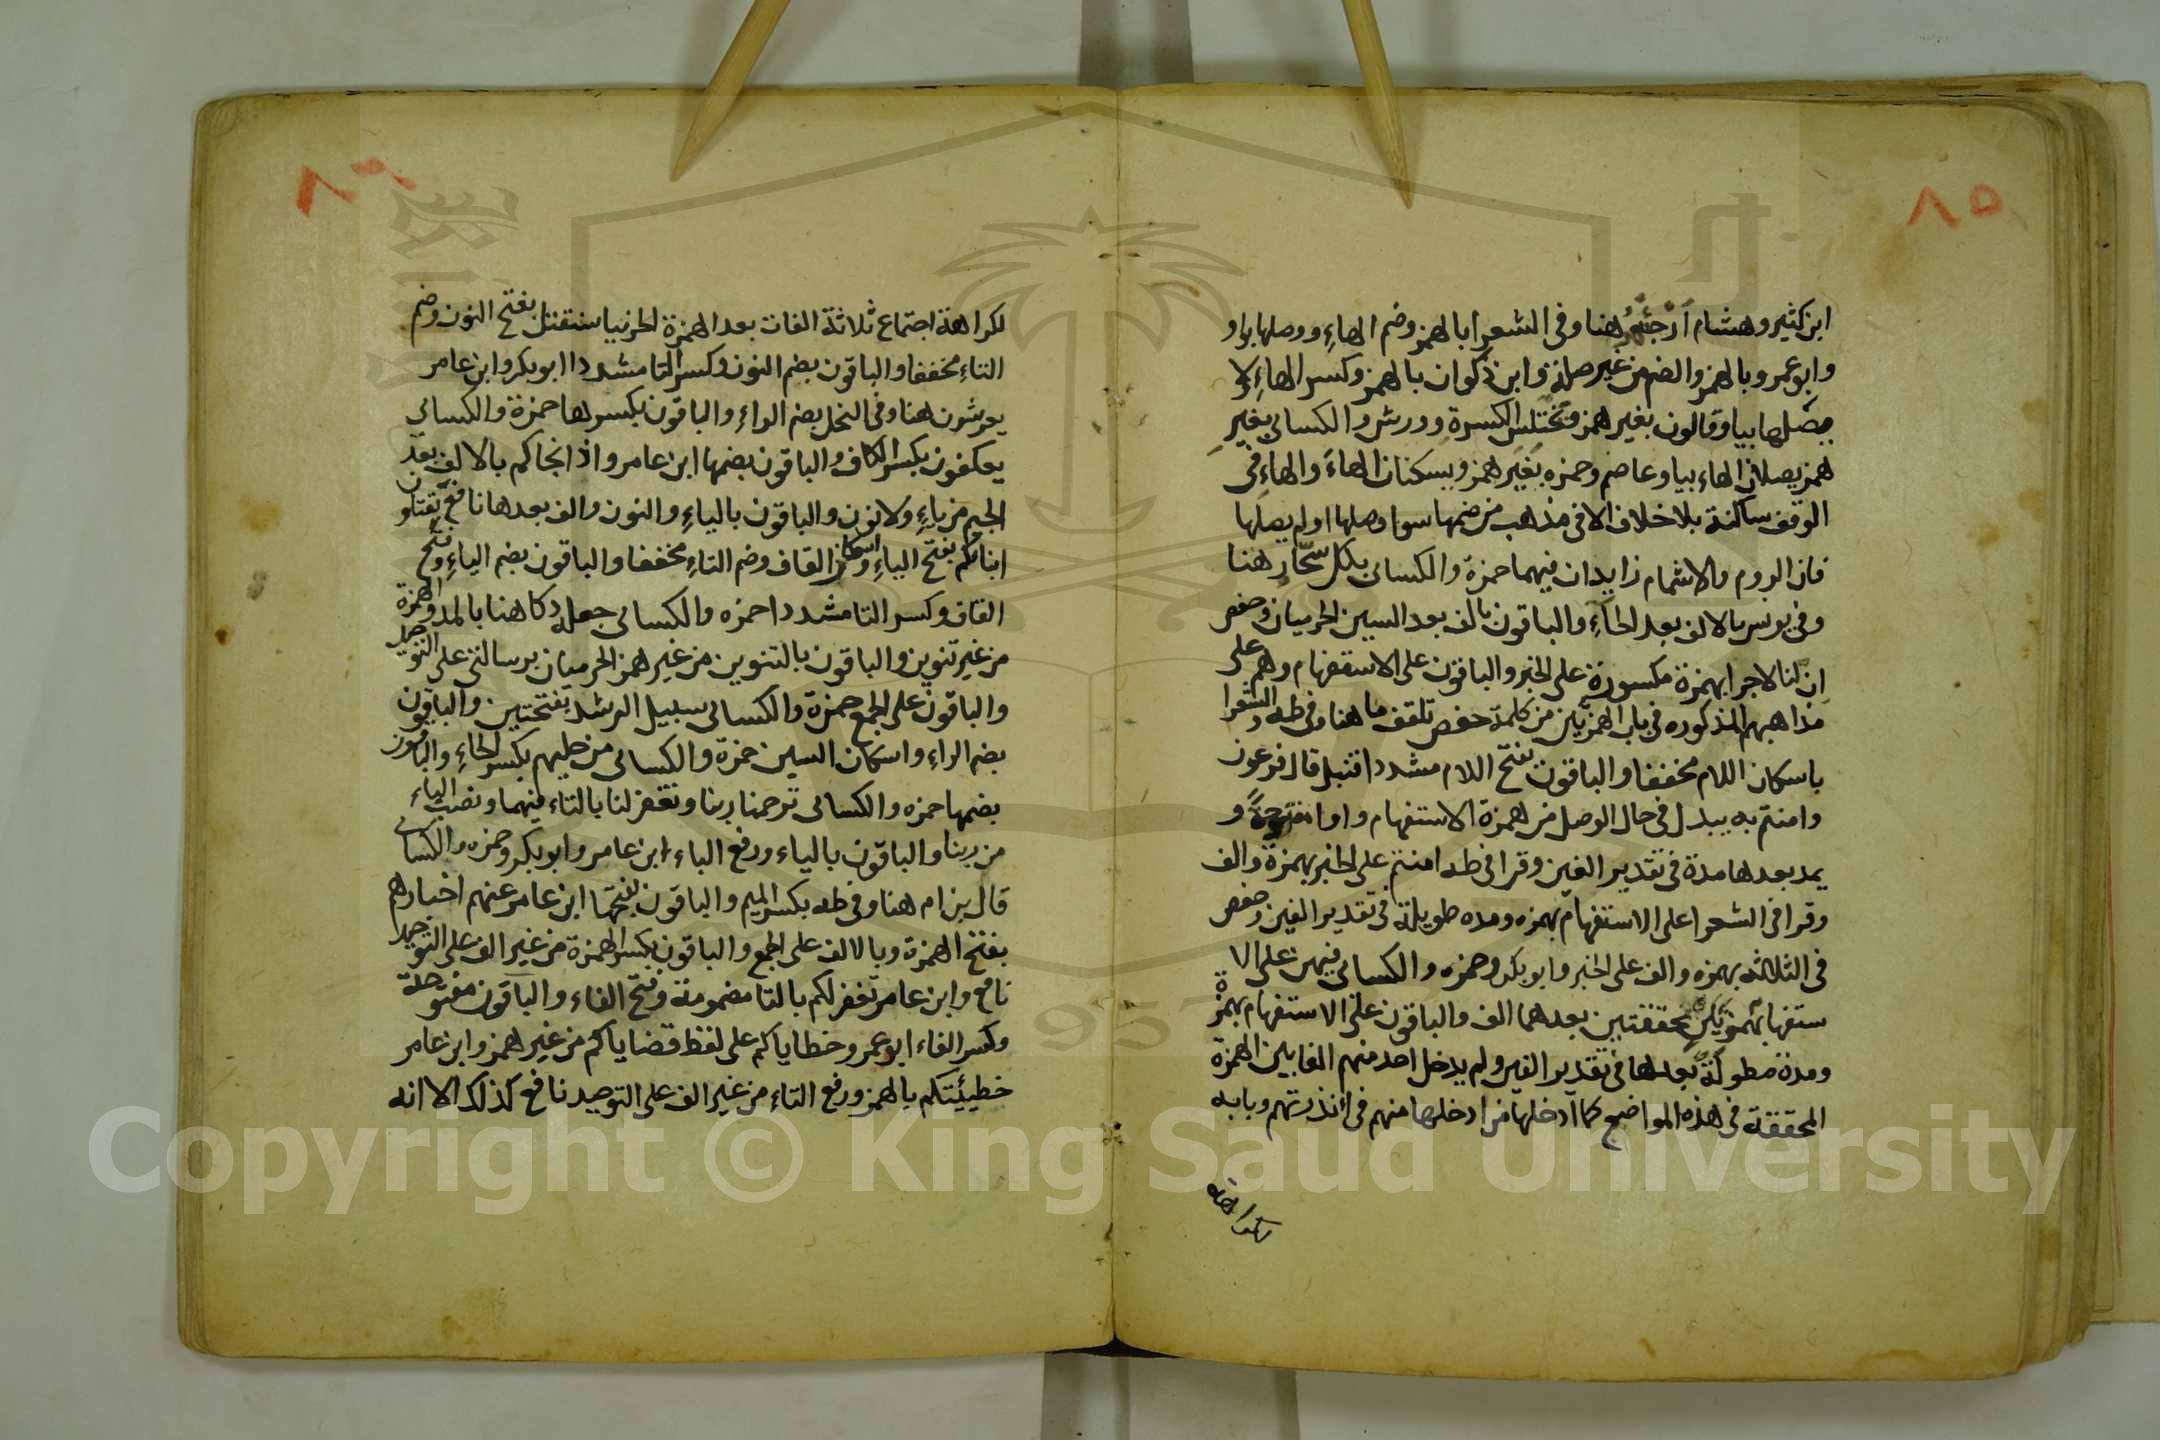 ٨٥
ابن كثير وهشام أرجئهُ هنا وفي الشعرا بالهمز وضم الهاءِ ووصلها بواو
وابو عمرو بالهمز والضم من غير صلة وابن ذكوان بالهمز وكسر الهاءِ ولا
يصلها بيا وقالون بغير همز ويختلس الكسرة وورش والكسائي بغيرِ
همز يصلان الهاء بيا وعاصم وحمزه بغير همز ويسكنان الهاءَ والهاءِ في
الوقف ساكنة بلا خلاف الا في مذهب من ضمها سوا وصلها او لم يصلها
فان الروم والاشمام زايدان فيهما حمزة والكسائي بكل سحّار هنا
وفي يونس بالالف بعد الحآءِ والباقون بالف بعد السين الحرميان وحفص
اِن لنا لاجرا بهمزة مكسورة على الخبر والباقون على الاستفهام وهم على
مذاهبهم المذكوره في باب الهمزتين من كلمة حفص تلقف ما هنا وفي طه والشعرا
باسكان اللام مخففا والباقون بفتح اللام مشددا قنبل قال فرعون
وامنتم به يبدل في حال الوصل من همزة الاستفهام واوا مفتوحةً و
يمد بعدها مدة في تقدير الفين وقرا في طه امنتم على الخبر بهمزة والف
وقرا في الشعرا على الاستفهام بهمزه ومده طويلة في تقدير الفين وحفص
في الثلاثه بهمزه والف على الخبر وابو بكر وحمزه والكسائي فيهن على الا
ستفهام بهمزتين محققتين بعدهما الف والباقون على الاستفهام بهمزة
ومدة مطولة بعدها في تقدير الفين ولم يدخل احد منهم الفا بين الهمزة
المحققة في هذه المواضع كما ادخلها من ادخلها منهم في أنذرتهم وبابه
لكراهة
٨٦
لكراهة اجتماع ثلاثة الفات بعد الهمزة الحرميا سنقتل بفتح النون وضم
التاءِ مخففا والباقون بضم النون وكسر التا مشددا ابو بكر وابن عامر
يعرشون هنا وفي النحل بضم الراءِ والباقون بكسرها حمزة والكسائي
يعكفون بكسر الكاف والباقون بضمها ابن عامر واذ انجاكم بالالف بعد
الجيم من ياءِ ولا نون والباقون بالياءِ والنون والف بعدها نافع يقتلون
ابناكم بفتح الياءِ واسكان القاف وضم التاءِ مخففا والباقون بضم الياءِ وفتح
القاف وكسر التا مشددا حمزه والكسائي جعله دكا هنا بالمد والهمزة
من غير تنوين والباقون بالتنوين من غير همز الحرميان برسالتي على التوحيد
والباقون على الجمع حمزة والكسائي سبيل الرشد بفتحتين والباقون
بضم الراءِ واسكان السين حمزة والكسائي من حليهم بكسر الحاءِ والباقون
بضمها حمزه والكسائي ترحمنا ربنا وتغفر لنا بالتاء فيهما ونصب الباء
من ربنا والباقون بالياء ورفع الباء ابن عامر وابو بكر وحمزه والكسائي
قال بن ام هنا وفي طه بكسر الميم والباقون بفتحها ابن عامر عنهم اخبارهم
بفتح الهمزة وبالالف على الجمع والباقون بكسر الهمزة من غير الف على التوحيد
نافع وابن عامر تغفر لكم بالتا مضمومة وفتح الفاء والباقون مفتوحة
وكسر الفاء ابو عمرو خطاياكم على لفظ قضاياكم من غير همز وابن عامر
خطيئتكم بالهمز ورفع التاءِ من غير الف على التوحيد نافع كذلك الا انه
Copyright © King Saud University